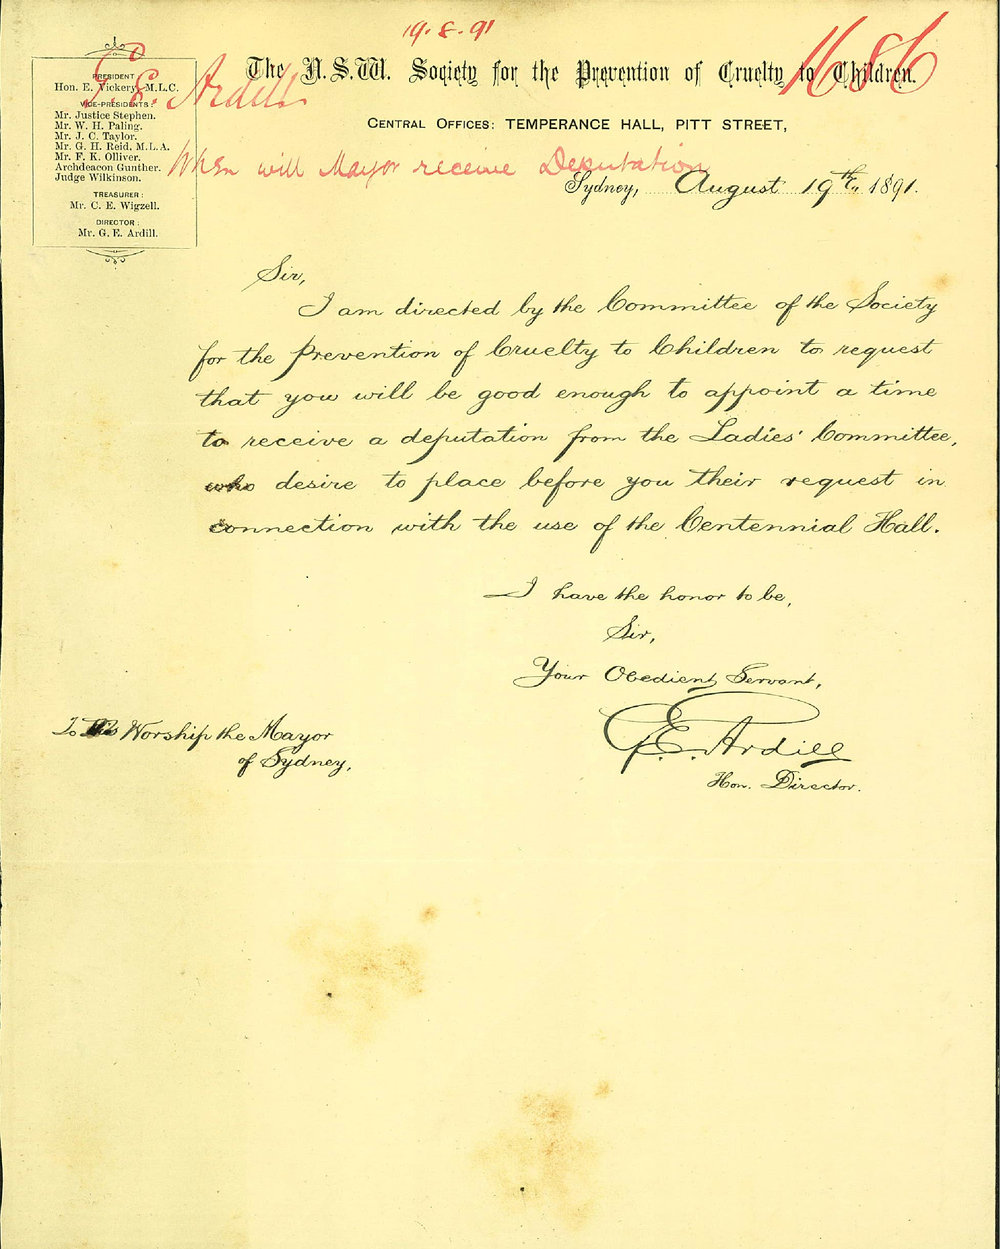 19.8.91
1686
G. E. Ardill
The N.S.W. Society for the Prevention of Cruelty to Children.
CENTRAL OFFICES: TEMPERANCE HALL, PITT STREET,
PRESIDENT
Hon. E. Vickery, M.L.C.
VICE-PRESIDENTS:
Mr. Justice Stephen.
Mr. W. H. Paling.
Mr. J. C. Taylor.
Mr. G. H. Reid, M.L.A.
Mr. F. K. Olliver.
Archdeacon Gunther.
Judge Wilkinson.
TREASURER:
Mr. C. E. Wigzell.
DIRECTOR:
Mr. G. E. Ardill.
When will Mayor receive Deputation
Sydney, August 19th, 1891.
Sir,
I am directed by the Committee of the Society
for the Prevention of Cruelty to Children to request
that you will be good enough to appoint a time
to receive a deputation from the Ladies' Committee,
who desire to place before you their request in
connection with the use of the Centennial Hall.
I have the honor to be,
Sir,
Your Obedient Servant,
G. E. Ardill
Hon. Director.
To His Worship the Mayor
of Sydney,